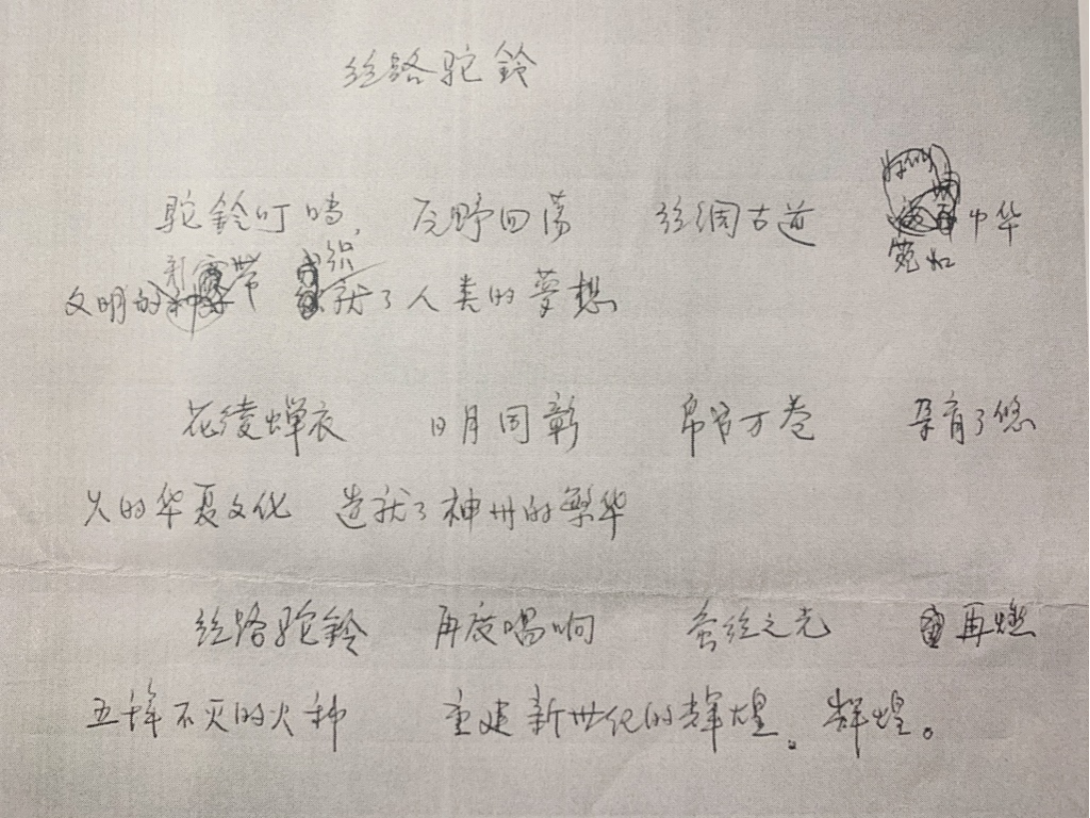 丝路驼铃
驼铃叮咚, 瓦野回荡 丝绸古道 宛如中华
文明的彩带 织就了人类的夢想
花绫蝉衣 日月同彰 帛书万卷 孕育了悠
久的华夏文化 造就了神州的繁华
丝路驼铃 再度唱响 蚕丝之光 再燃
五千年不灭的火种 重建新世纪的辉煌。辉煌。